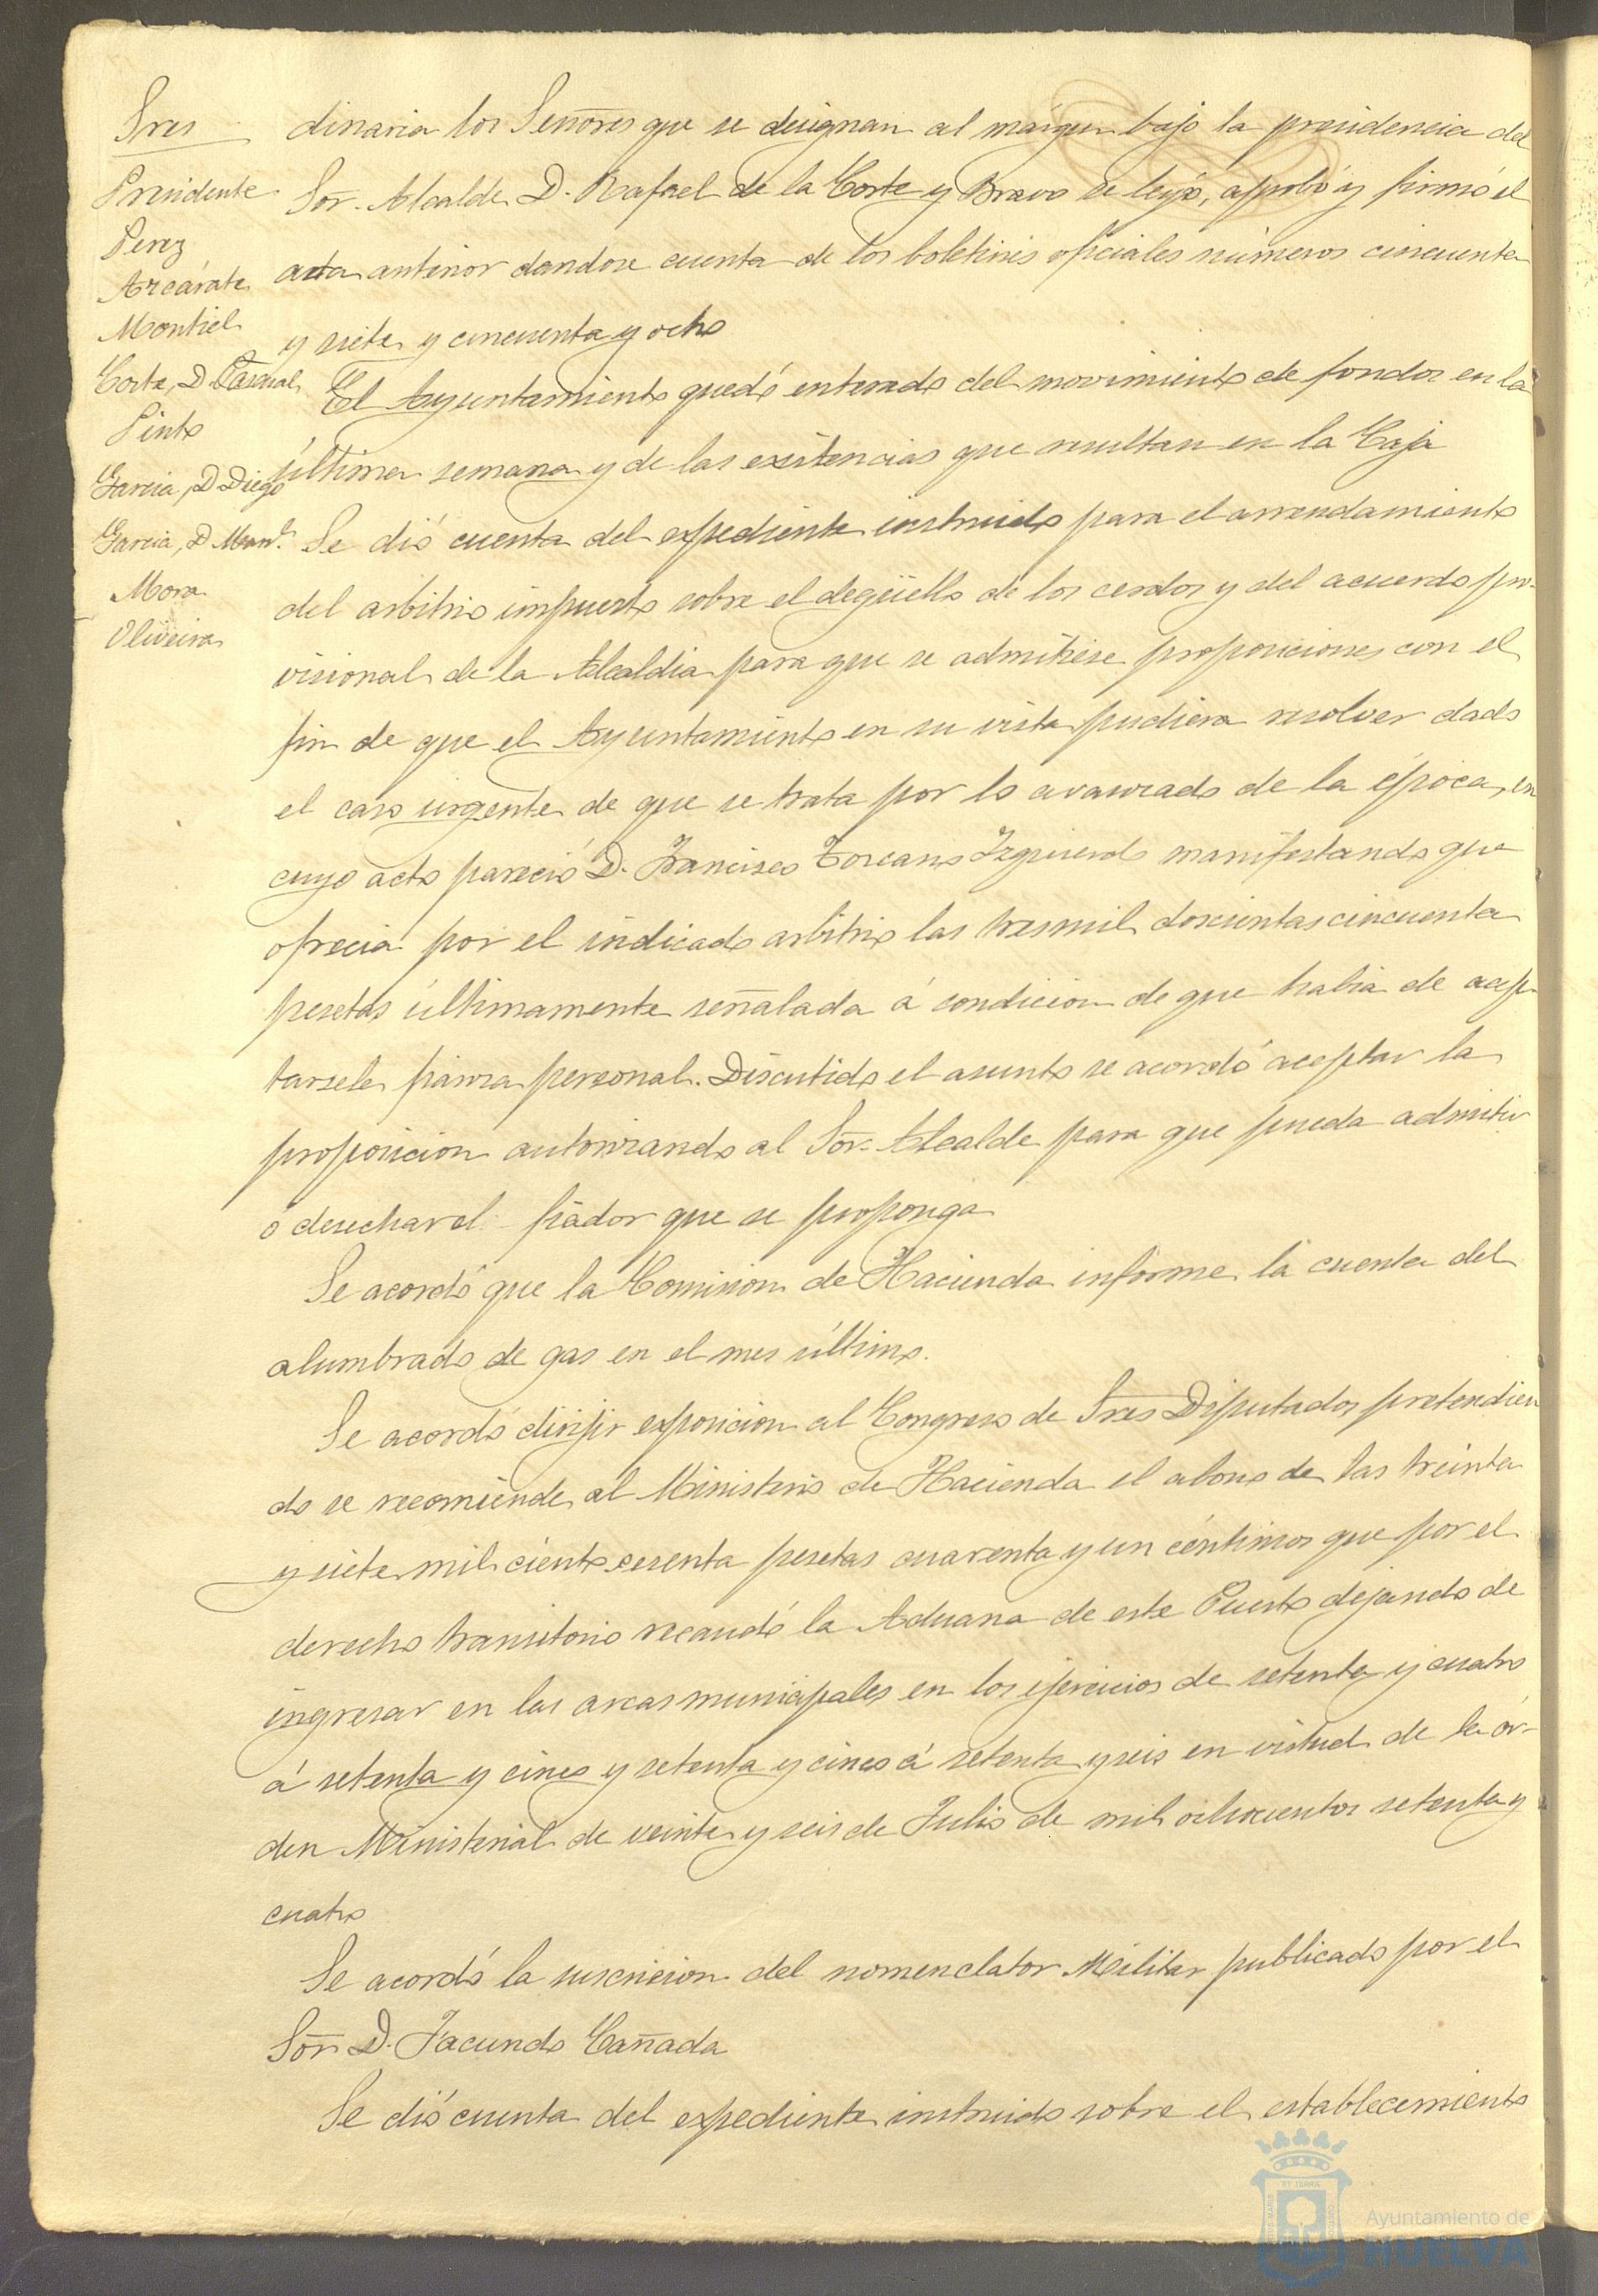 Sres
Presidente
Perez
Azcárate
Montiel
Corte, D. Pascual
Pinto
Garcia, D. Diego
Garcia, D. Manl.
Mora
Oliveira
dinaria los Señores que se designan al márgen bajo la presidencia del
Sor. Alcalde D. Rafael de la Corte y Bravo se leyó, aprobó y firmó el
acta anterior dandose cuenta de los boletines oficiales números cincuenta
y siete y cincuenta y ocho
El Ayuntamiento quedó enterado del movimiento de fondos en la
última semana y de las existencias que resultan en la Caja
Se dió cuenta del expediente instruido para el arrendamiento
del arbitrio impuesto sobre el degüello de los cerdos y del acuerdo pro-
visional de la Alcaldia para que se admitiese proposiciones con el
fin de que el Ayuntamiento en su vista pudiera resolver dado
el caso urgente de que se trata por lo avanzado de la época, en
cuyo acto pareció D. Francisco Toscano Izquierdo manifestando que
ofrecia por el indicado arbitrio las tres mil doscientas cincuenta
pesetas últimamente señalada á condicion de que habia de acep-
tarsele fianza personal. Discutido el asunto se acordó aceptar la
proposicion autorizando al Sor. Alcalde para que pueda admitir
ó desechar el fiador que se proponga
Se acordó que la Comision de Hacienda informe la cuenta del
alumbrado de gas en el mes último.
Se acordó dirijir exposicion al Congreso de Sres Diputados pretendien
do se recomiende al Ministerio de Hacienda el abono de las treinta
y siete mil ciento sesenta pesetas cuarenta y un céntimos que por el
derecho transitorio recaudó la Aduana de este Puerto dejando de
ingresar en las arcas municipales en los ejercicios de setenta y cuatro
á setenta y cinco y setenta y cinco á setenta y seis en virtud de la ór-
den Ministerial de veinte y seis de Julio de mil ochocientos setenta y
cuatro
Se acordó la suscricion del nomenclator Militar publicado por el
Sor. D. Facundo Cañada
Se dió cuenta del expediente instruido sobre el establecimiento
Ayuntamiento de
HUELVA